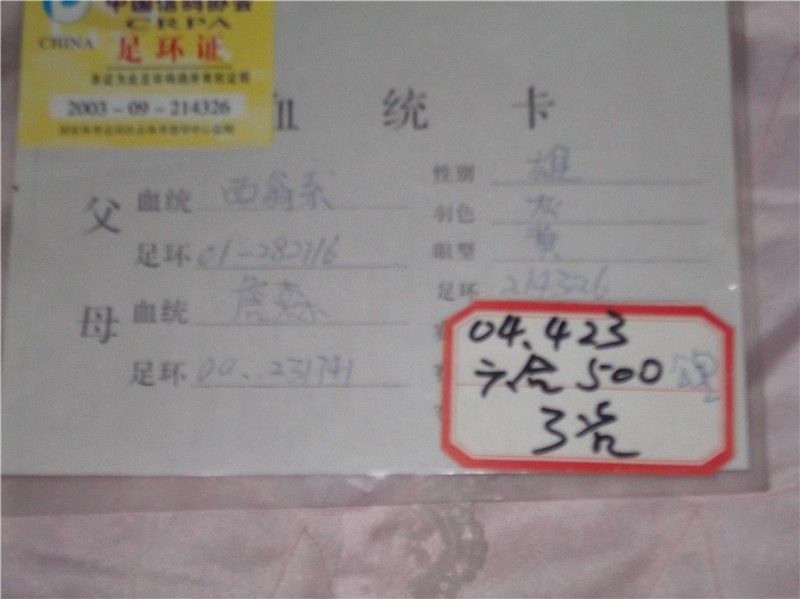 中国信鸽协会
CRPA
CHINA 足环证
2003-09-214326
血统卡
父 血统 西翁系
足环 01-282716
母 血统 詹森
足环 00..231741
性别 雄
羽色 灰
眼型 黄
足环 214326
04.423
六合 500
3羽